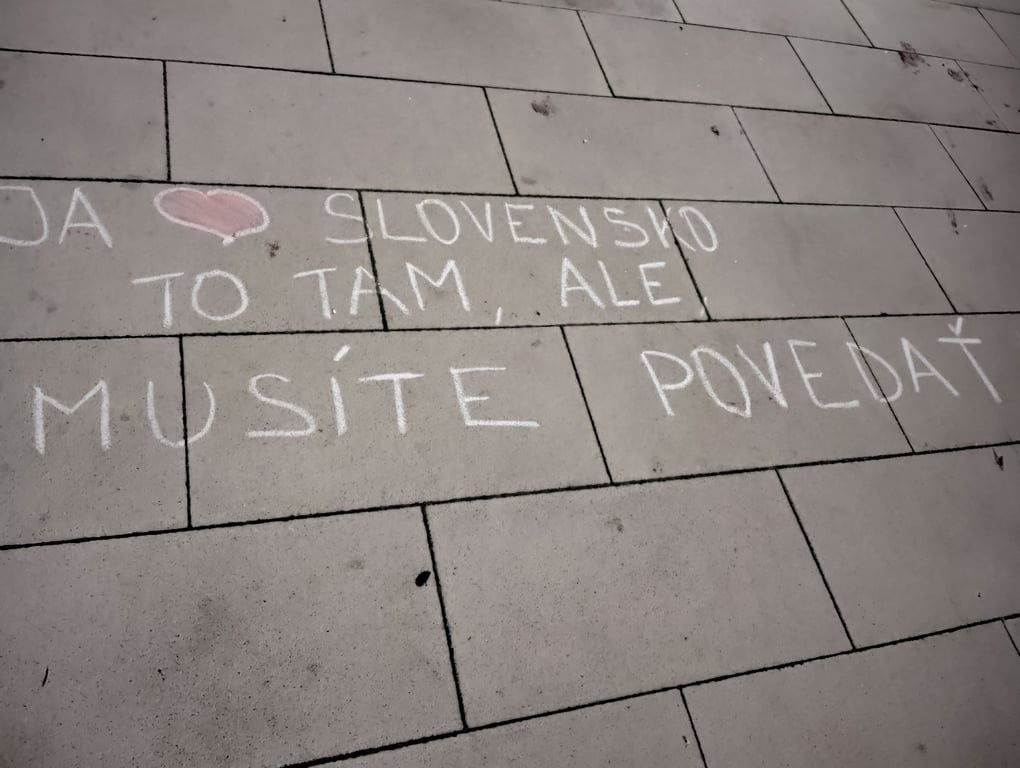 JA ❤ SLOVENSKO
TO TAM, ALE,
MUSÍTE POVEDAŤ